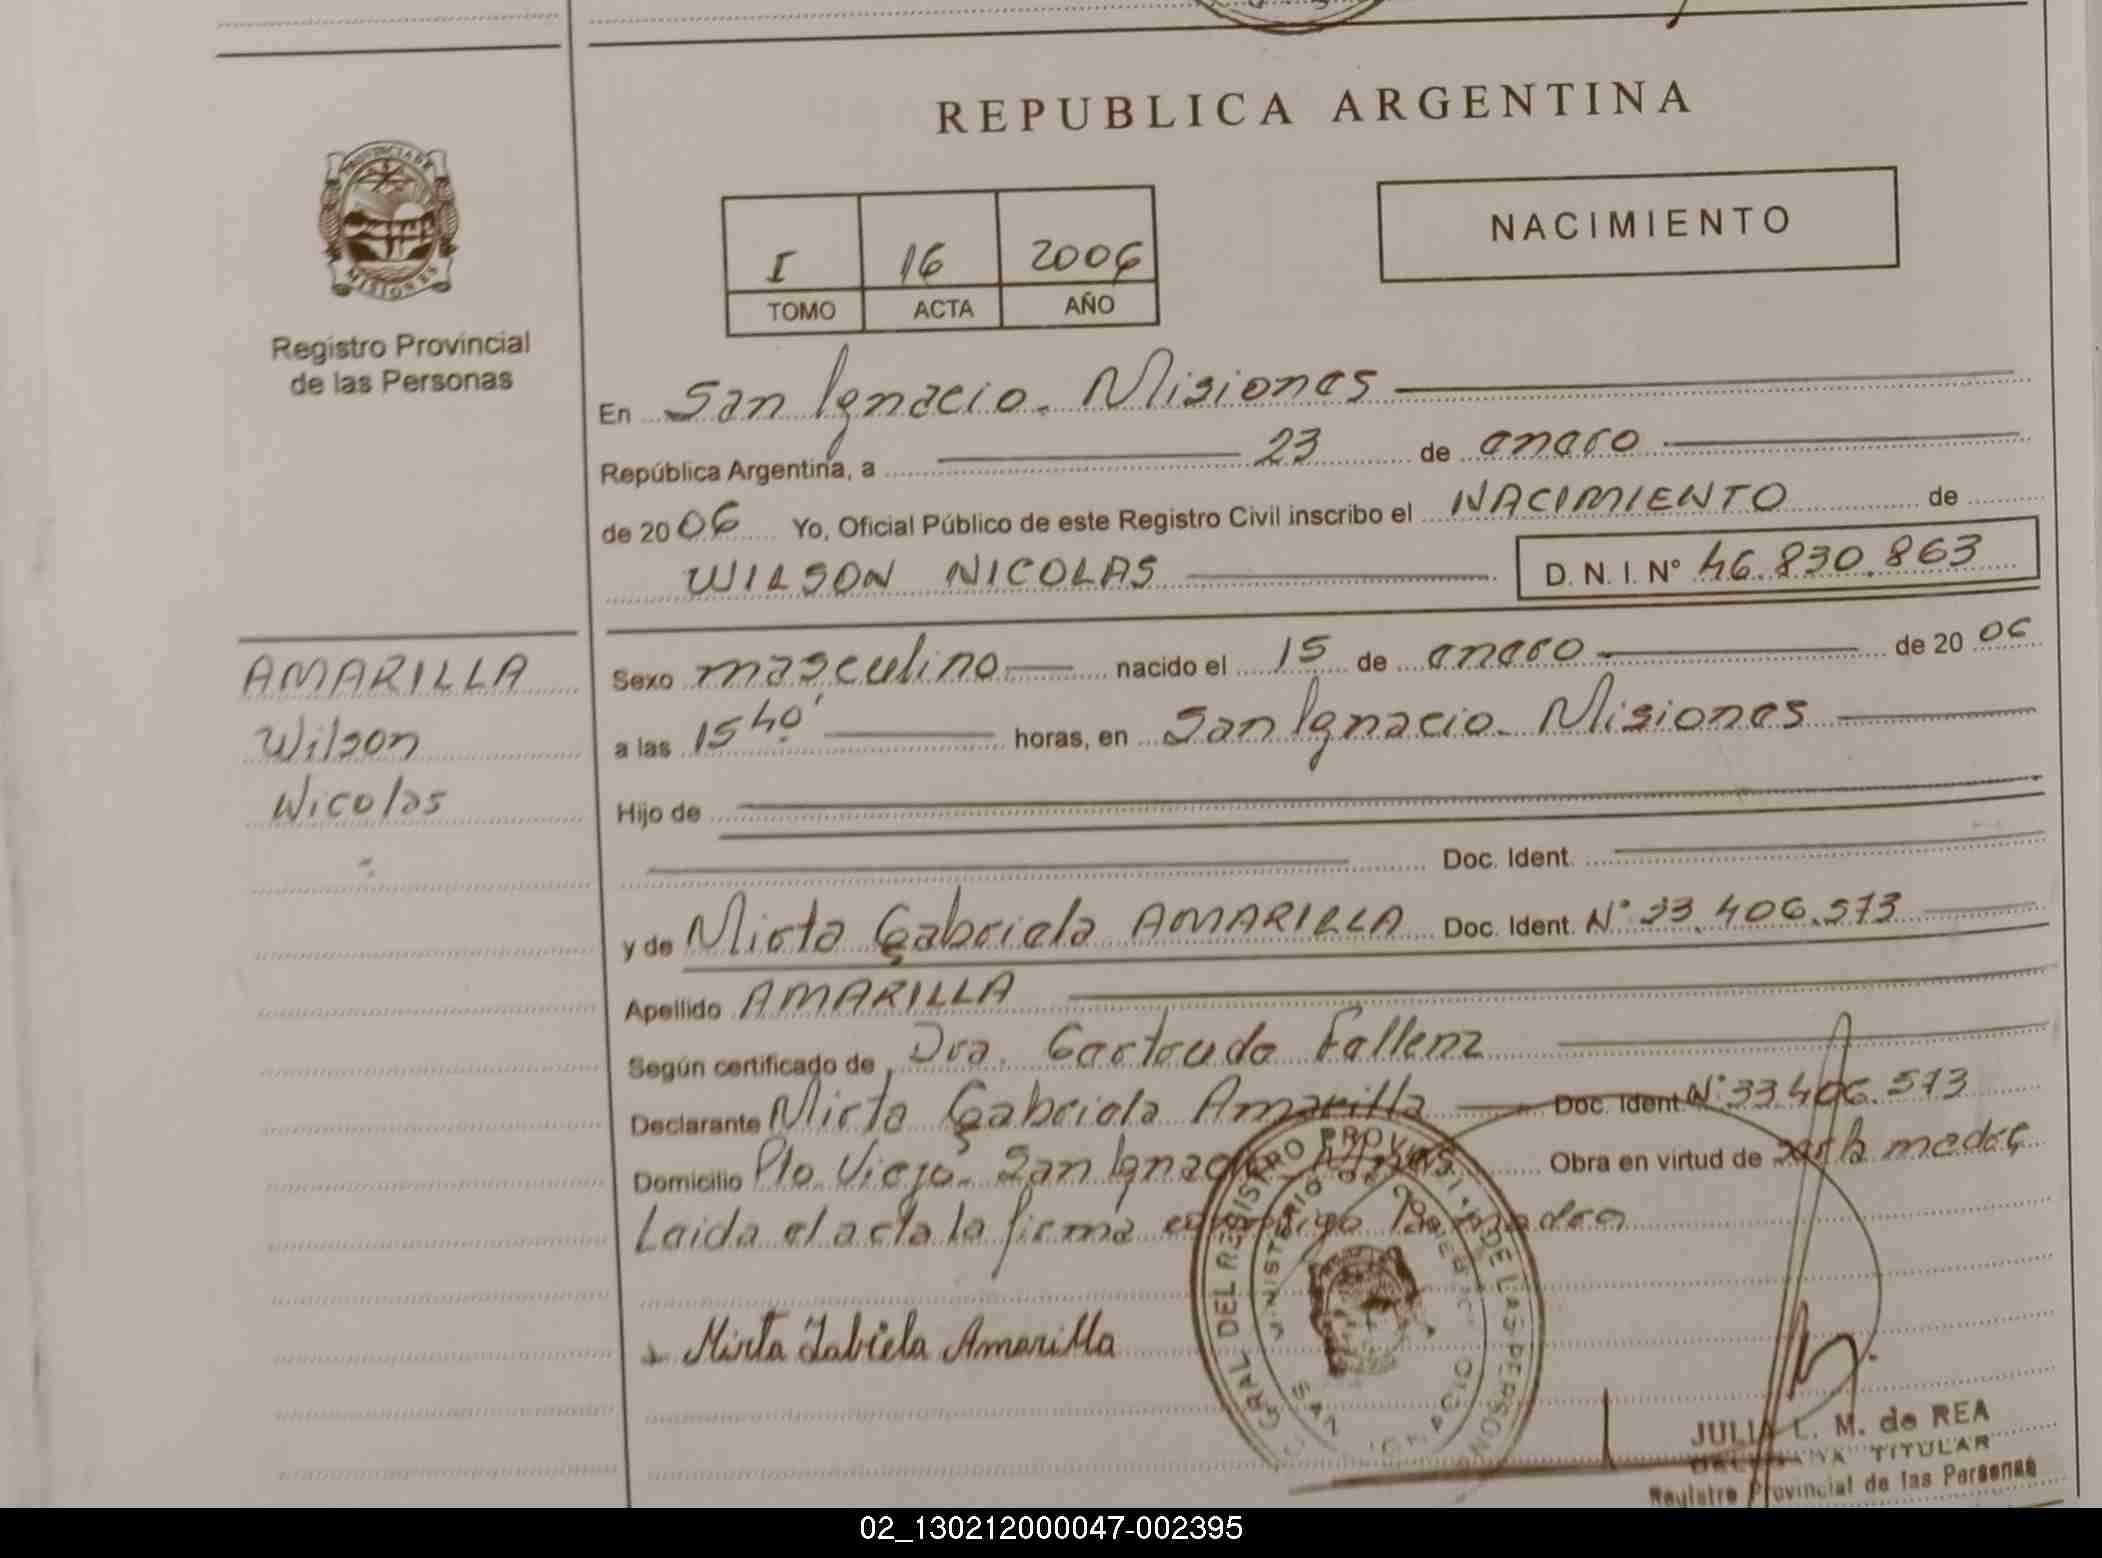 REPUBLICA ARGENTINA
PROVINCIA DE
MISIONES
Registro Provincial
de las Personas
I 16 2006
TOMO ACTA AÑO
NACIMIENTO
En San Ignacio. Misiones
República Argentina, a 23 de enero
de 2006 Yo, Oficial Público de este Registro Civil inscribo el NACIMIENTO de
WILSON NICOLAS D. N. I. N° 46.830.863
AMARILLA
Wilson
Nicolas
Sexo masculino nacido el 15 de enero de 2006
a las 15 40' horas, en San Ignacio. Misiones
Hijo de
Doc. Ident.
y de Mirta Gabriela AMARILLA Doc. Ident. N° 33.406.573
Apellido AMARILLA
Según certificado de Dra. Gertrudo Fallenz
Declarante Mirta Gabriela Amarilla Doc. Ident. N° 33.406.573
Domicilio Pto. Viejo. San Ignacio Obra en virtud de ser la madre
Leida el acta la firma conmigo la madre
Mirta Gabiela Amarilla
GRAL DEL REGISTRO PROVINCIAL DE LAS PERSONAS
MINISTERIO DE GOBIERNO
SAN IGNACIO
JULIA L. M. de REA
TITULAR
Registro Provincial de las Personas
02_130212000047-002395